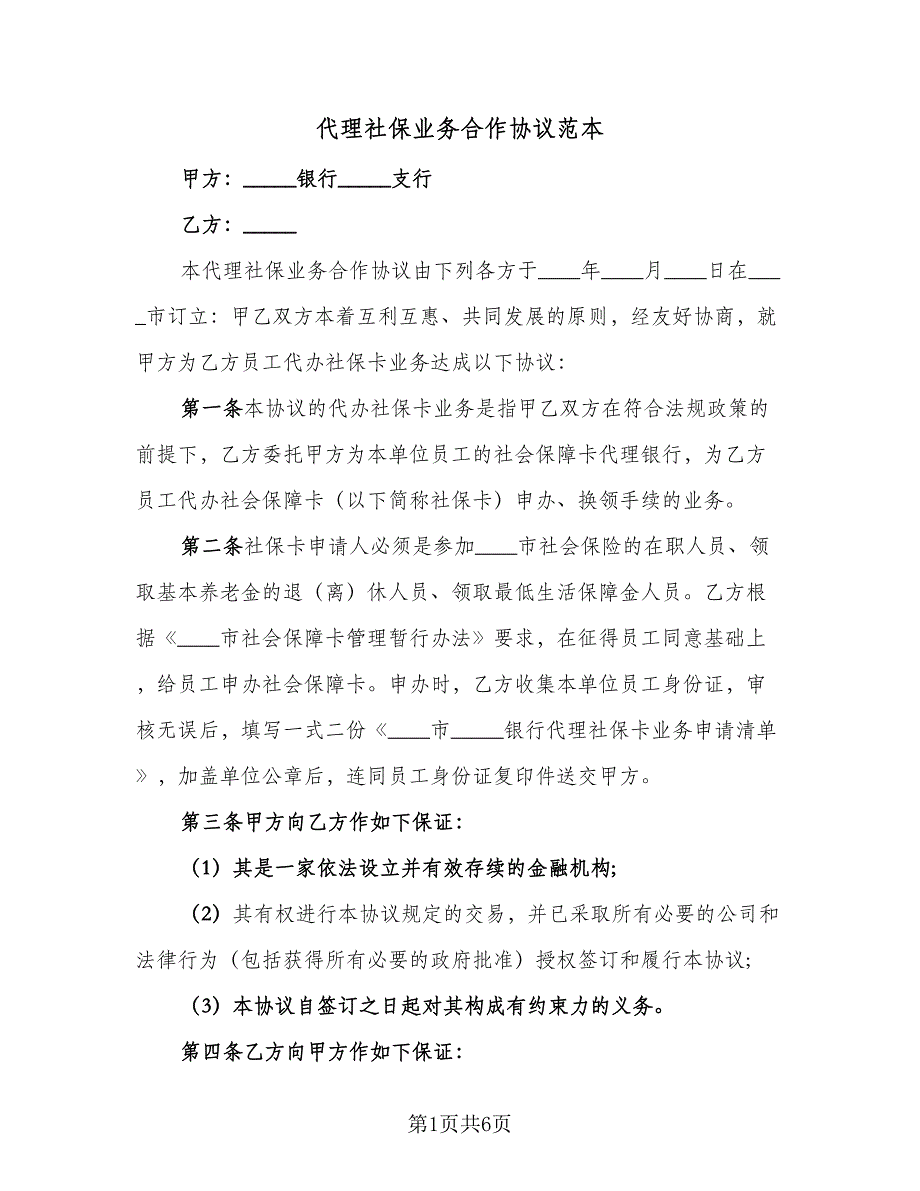 代理社保业务合作协议范本
甲方：_____银行_____支行
乙方：_____
本代理社保业务合作协议由下列各方于____年____月____日在___
_市订立：甲乙双方本着互利互惠、共同发展的原则，经友好协商，就
甲方为乙方员工代办社保卡业务达成以下协议：
第一条本协议的代办社保卡业务是指甲乙双方在符合法规政策的
前提下，乙方委托甲方为本单位员工的社会保障卡代理银行，为乙方
员工代办社会保障卡（以下简称社保卡）申办、换领手续的业务。
第二条社保卡申请人必须是参加____市社会保险的在职人员、领
取基本养老金的退（离）休人员、领取最低生活保障金人员。乙方根
据《____市社会保障卡管理暂行办法》要求，在征得员工同意基础上
，给员工申办社会保障卡。申办时，乙方收集本单位员工身份证，审
核无误后，填写一式二份《____市_____银行代理社保卡业务申请清单
》，加盖单位公章后，连同员工身份证复印件送交甲方。
第三条甲方向乙方作如下保证：
（1）其是一家依法设立并有效存续的金融机构;
（2）其有权进行本协议规定的交易，并已采取所有必要的公司和
法律行为（包括获得所有必要的政府批准）授权签订和履行本协议;
（3）本协议自签订之日起对其构成有约束力的义务。
第四条乙方向甲方作如下保证：
第1页共6页